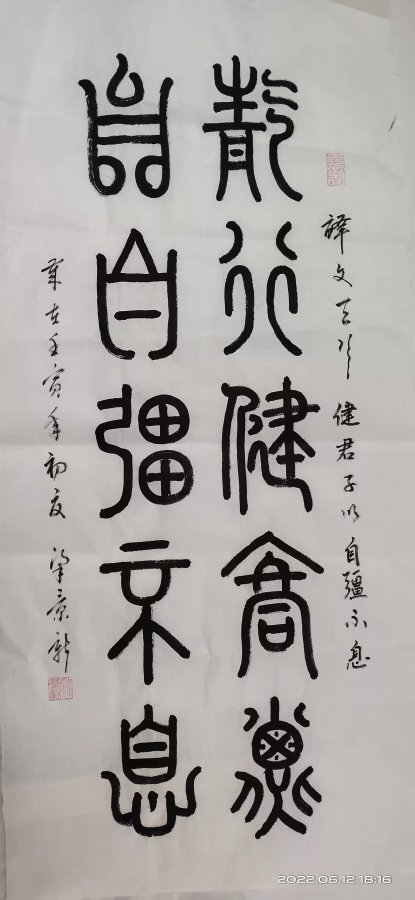 譯文天行健君子以自彊不息
天行健君子
以自彊不息
歲在壬寅年初夏 梁景新
2022.06.12 18:16